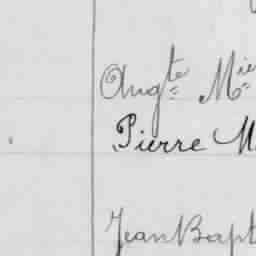 Augte Mie
Pierre M
Jean Bapt